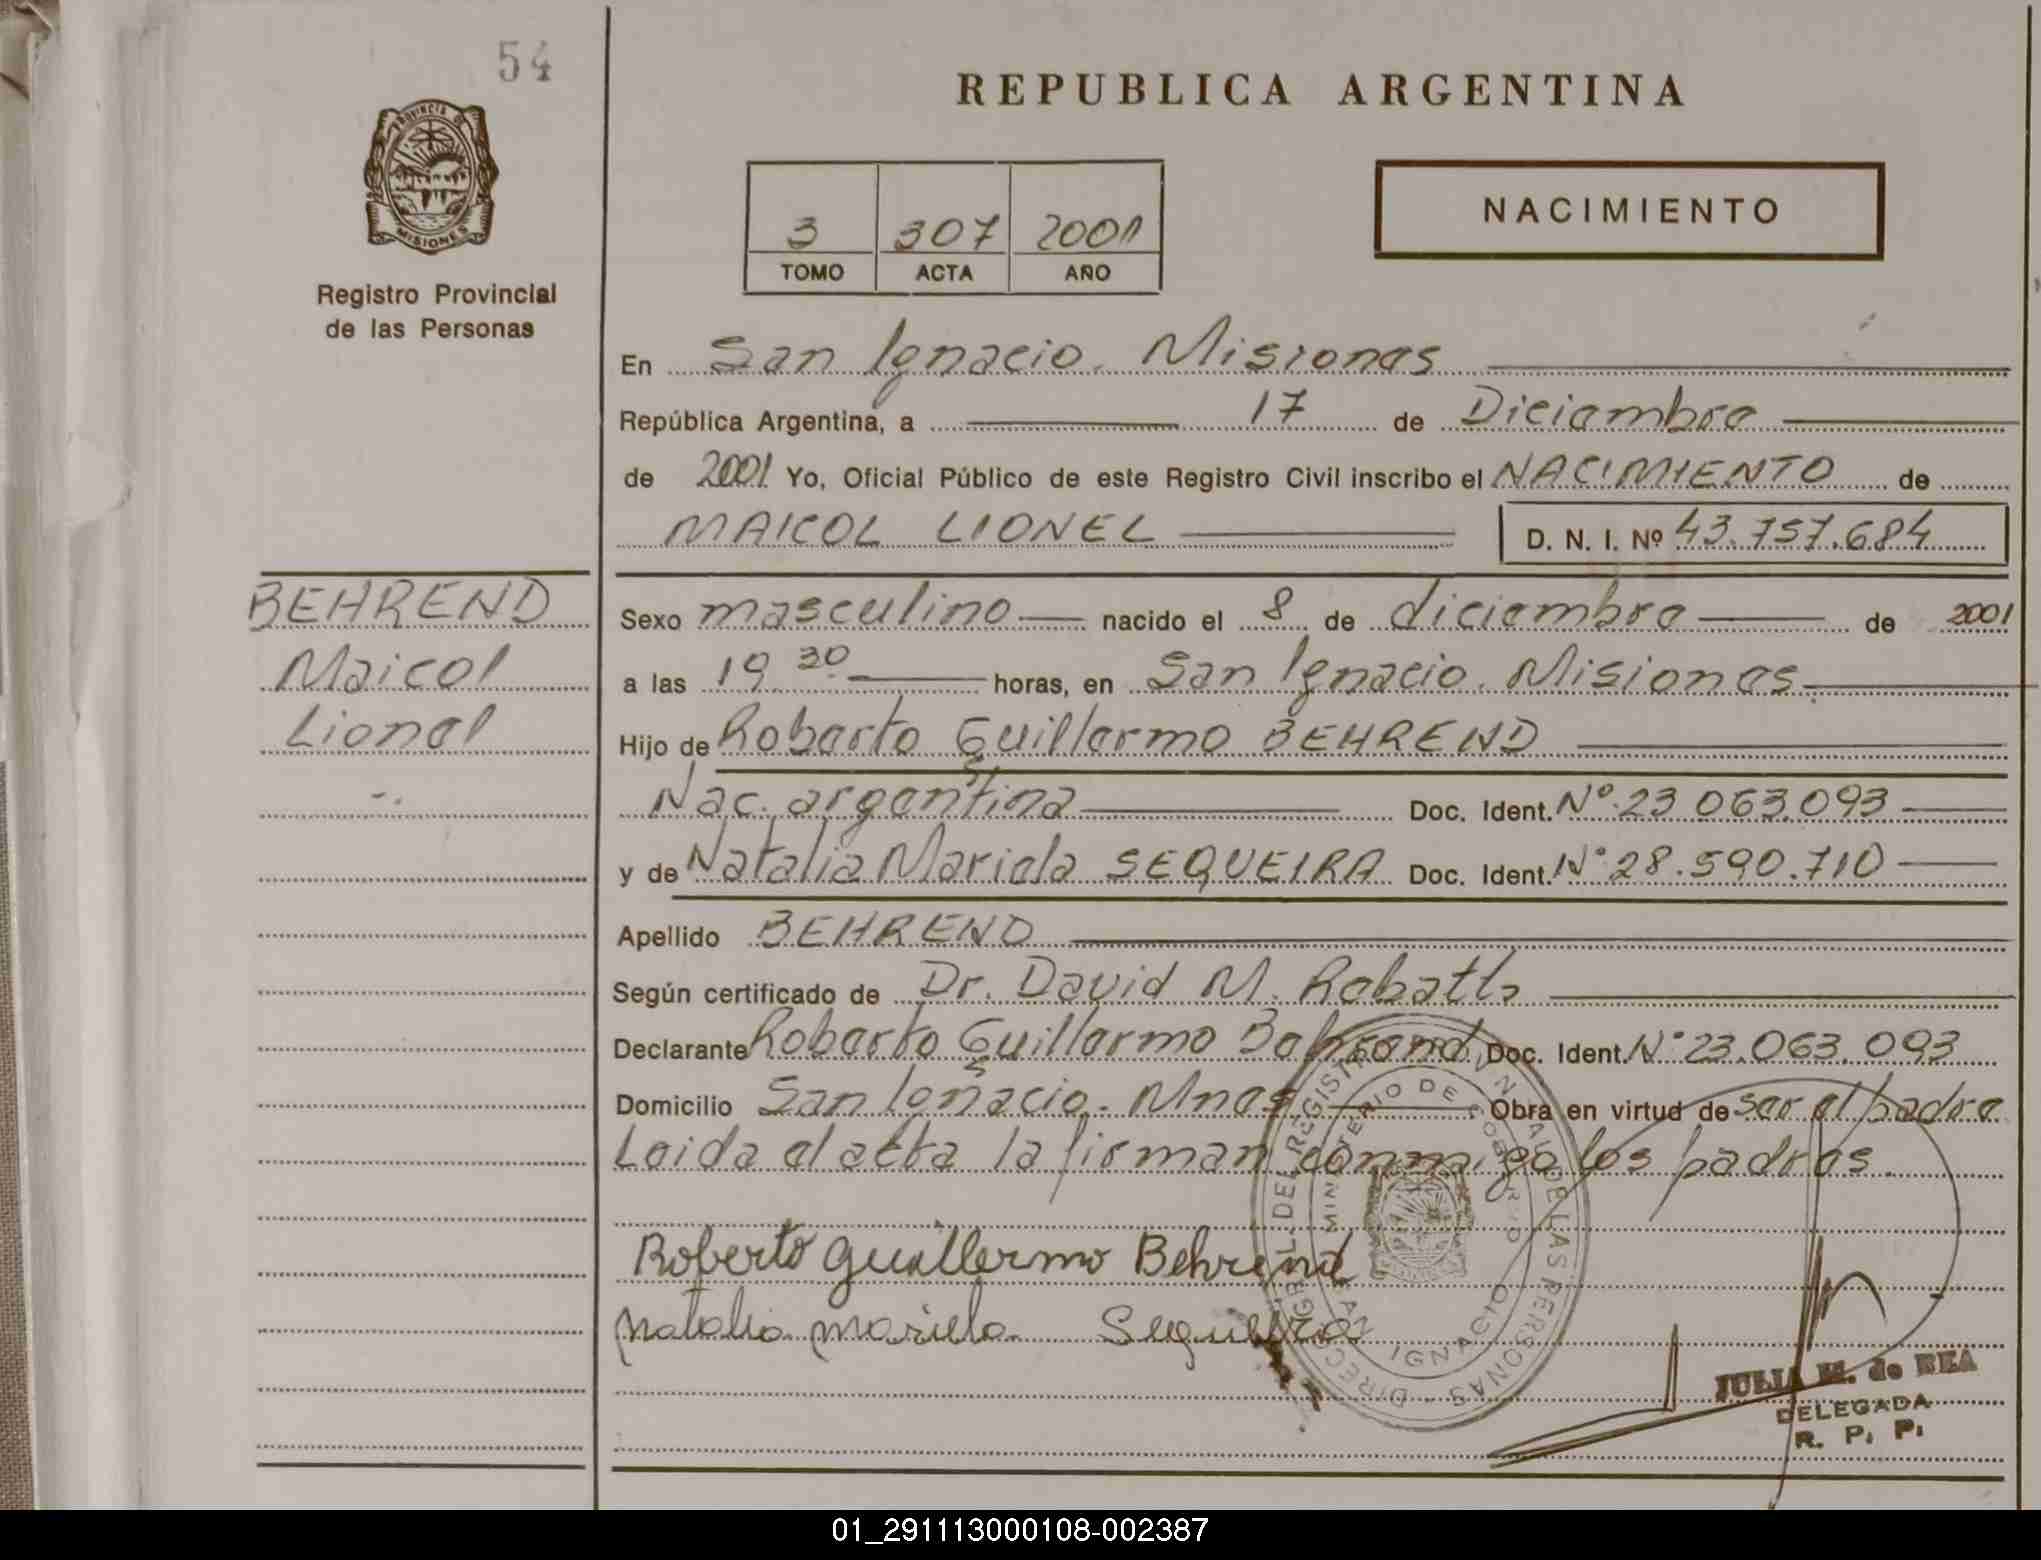 54
PROVINCIA DE
MISIONES
Registro Provincial
de las Personas
REPUBLICA ARGENTINA
3 307 2001
TOMO ACTA AÑO
NACIMIENTO
En San Ignacio. Misiones
República Argentina, a 17 de Diciembre
de 2001 Yo, Oficial Público de este Registro Civil inscribo el NACIMIENTO de
MAICOL LIONEL D. N. I. Nº 43.757.684
BEHREND
Maicol
Lionel
Sexo masculino nacido el 8 de diciembre de 2001
a las 19 30 horas, en San Ignacio. Misiones
Hijo de Roberto Guillermo BEHREND
Nac. argentina Doc. Ident. Nº 23.063.093
y de Natalia Mariela SEQUEIRA Doc. Ident. Nº 28.590.710
Apellido BEHREND
Según certificado de Dr. David M.
Declarante Roberto Guillermo Behrend Doc. Ident. Nº 23.063.093
Domicilio San Ignacio. Mnes Obra en virtud de ser el padre
Leida el acta la firman conmigo los padres.
Roberto Guillermo Behrend
Natalia Mariela Sequeira
DIRECCION GRAL. DEL REGISTRO PROVINCIAL DE LAS PERSONAS
MINISTERIO DE GOBIERNO
SAN IGNACIO
JULIA M. de REA
DELEGADA
R. P. P.
01_291113000108-002387